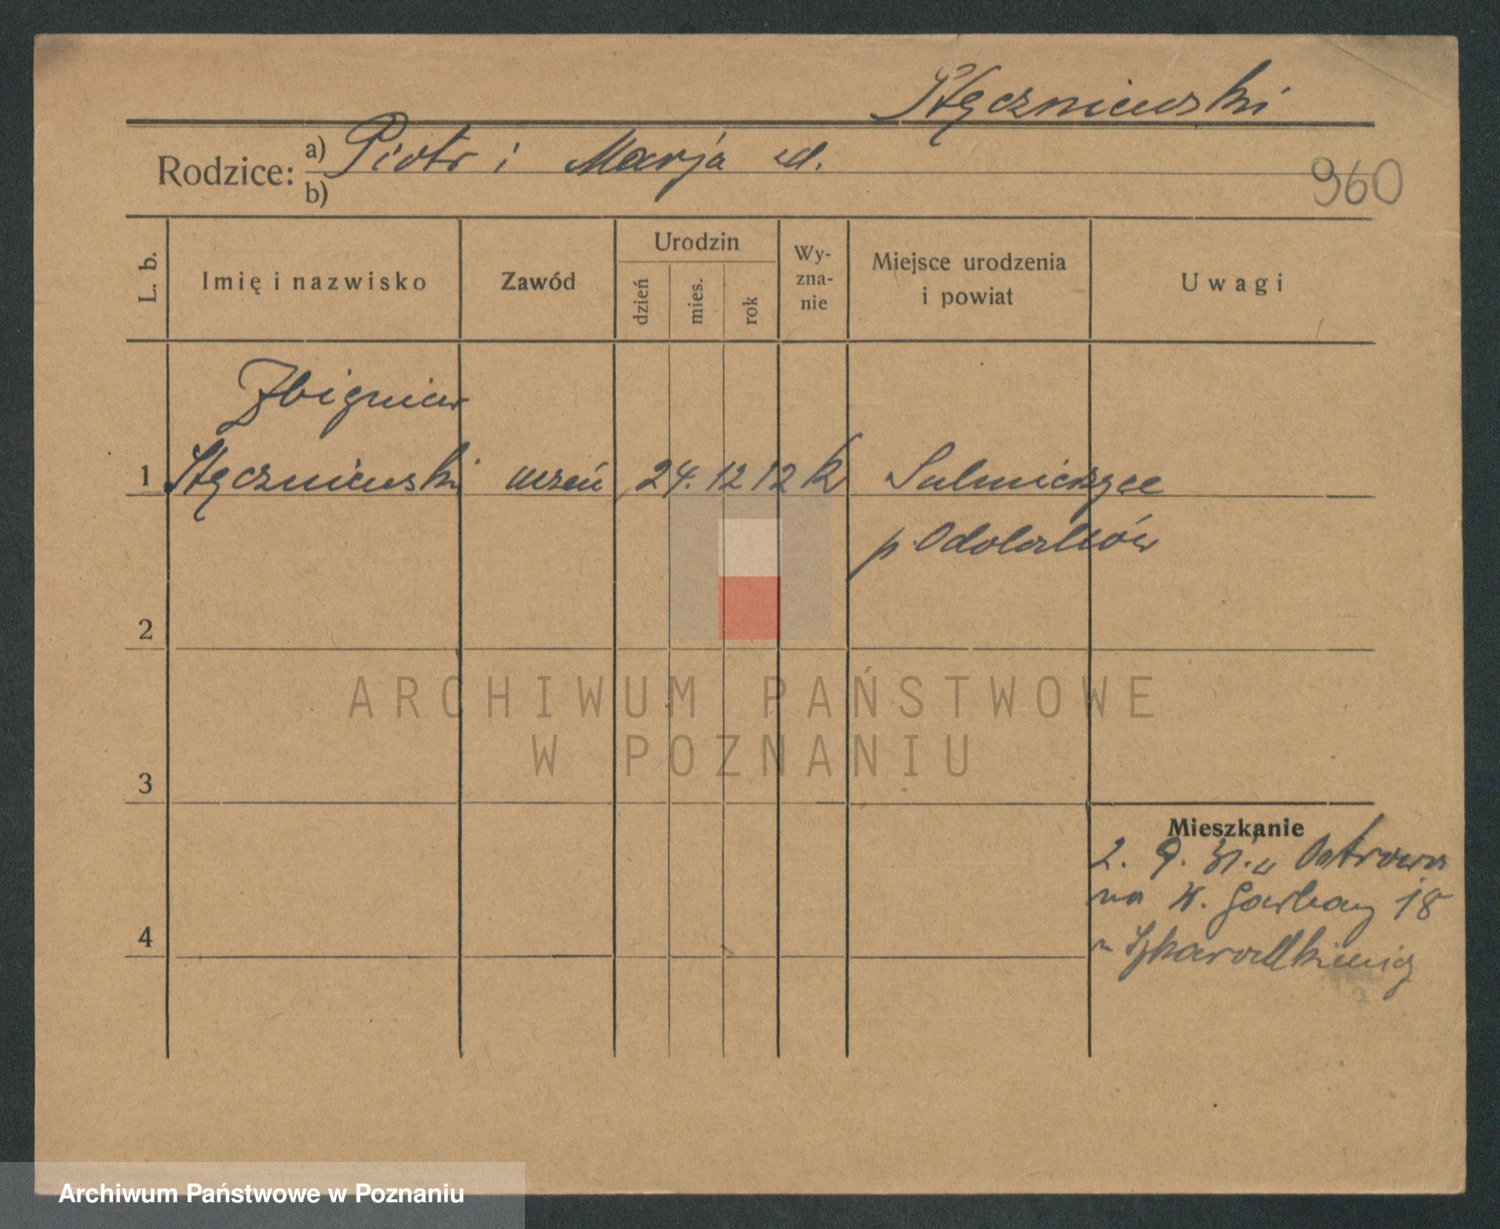 Stęczniewski
Rodzice: a) Piotr i Marja d.
b)
960
L. b.
Imię i nazwisko
Zawód
Urodzin
dzień
mies.
rok
Wy-
zna-
nie
Miejsce urodzenia
i powiat
Uwagi
Zbigniew
1 Stęczniewski uczeń 24. 12 12 k Sulmierzyce
p. Odolanów
2
ARCHIWUM PAŃSTWOWE
W POZNANIU
3
Mieszkanie
2. 9. 31. Ostrowa
na W. Garbary 18
4
Archiwum Państwowe w Poznaniu